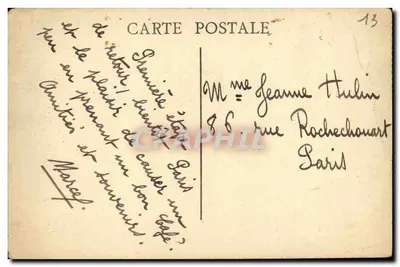 CARTE POSTALE
13
Première étape Paris
de retour! bientôt
et le plaisir de causer un
peu en prenant un bon café.
Amitiés et souvenirs.
Marcel
Mme Jeanne Hulin
86 rue Rochechouart
Paris
CPAPHIL